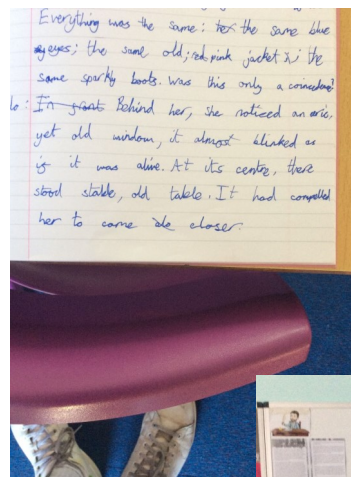 Everything was the same: the same blue
eyes; the same old; pink jacket; the
same sparkly boots. Was this only a coincidence?
Behind her, she noticed an eric,
yet old window, it almost blinked as
if it was alive. At its centre, there
stood stable, old table. It had compelled
her to come closer.